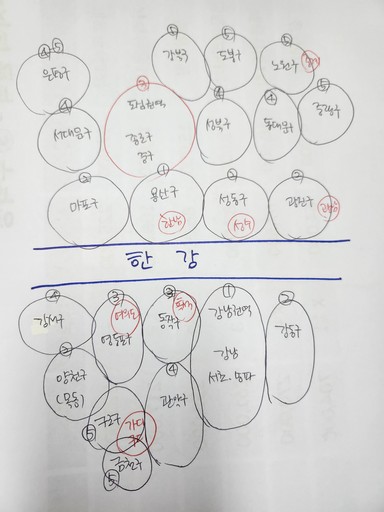 ④⑤
은평구
⑤
강북구
⑤
도봉구
⑤
노원구
④
서대문구
③
도심권역
종로구
중구
④
성북구
④
동대문구
⑤
중랑구
②
마포구
①
용산구
한남
②
성동구
성수
②
광진구
한 강
④
강서구
③
여의도
영등포구
③
동작구
①
강남권역
강남
서초·송파
②
강동구
②
양천구
(목동)
④
관악구
⑤
구로구
가디
⑤
금천구